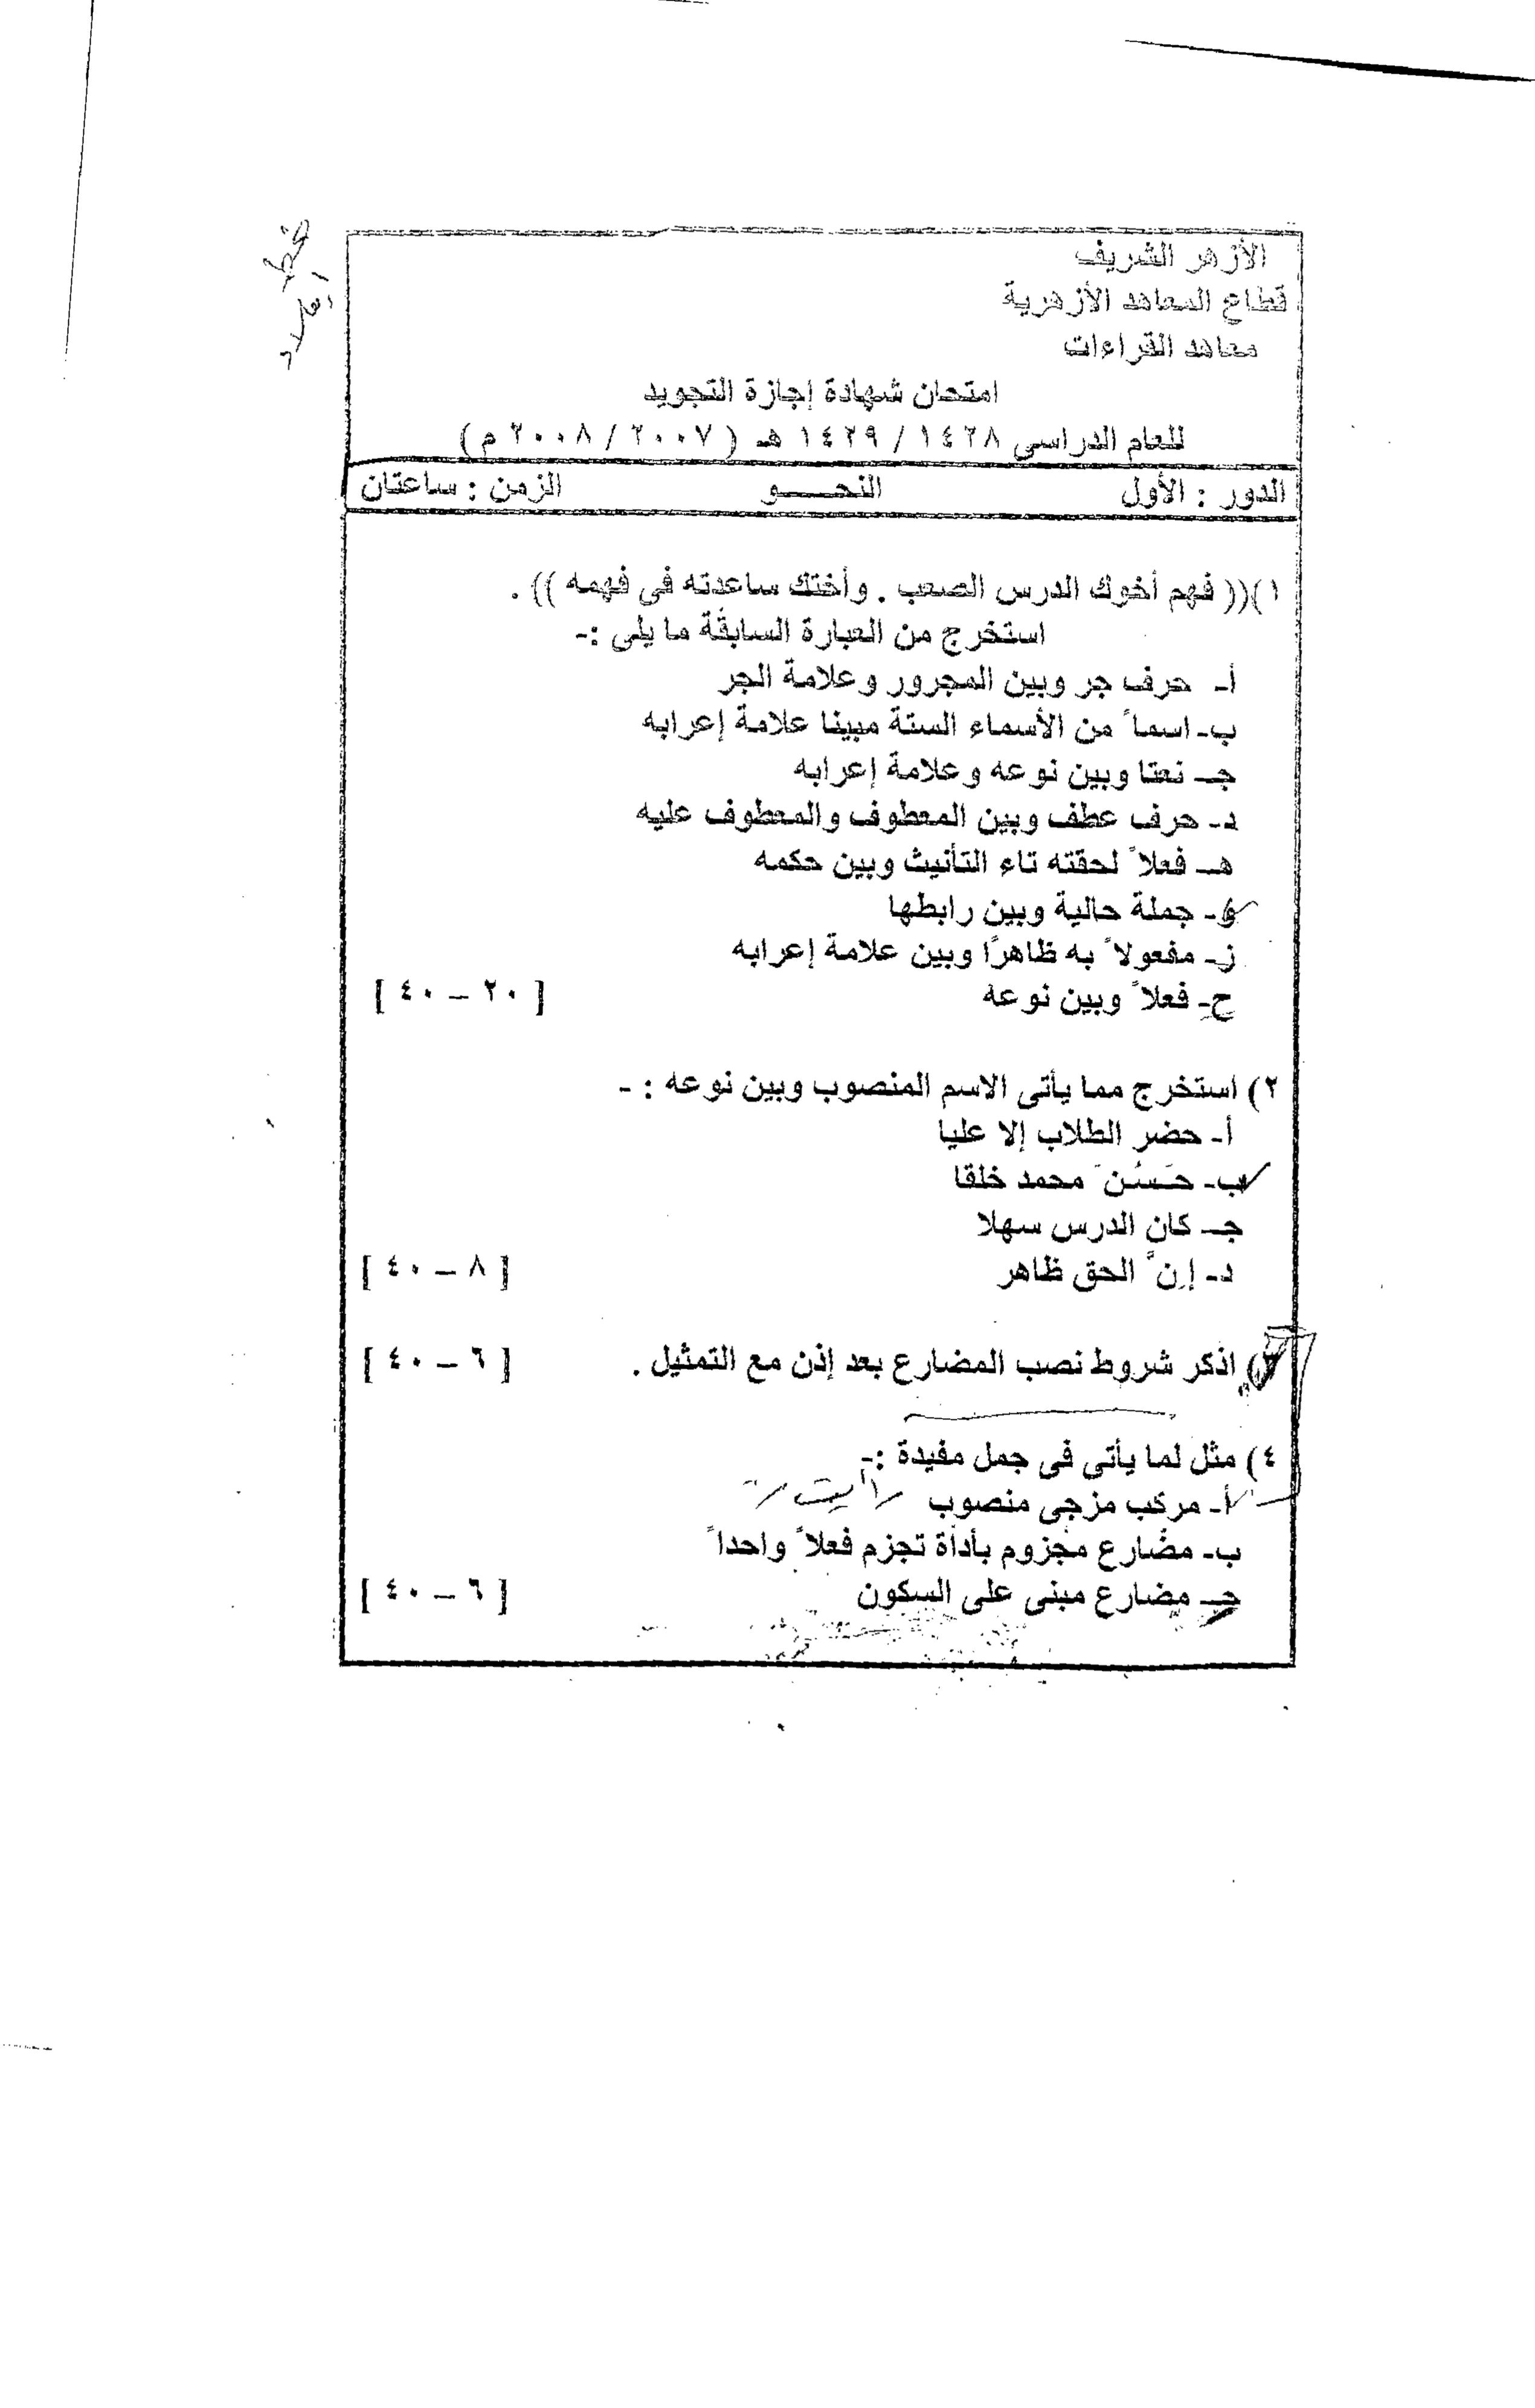 الأزهر الشريف
قطاع المعاهد الأزهرية
معاهد القراءات
امتحان شهادة إجازة التجويد
للعام الدراسى ١٤٢٨ / ١٤٢٩ هـ ( ٢٠٠٧ / ٢٠٠٨ م )
الدور : الأول النحـــو الزمن : ساعتان
١ )(( فهم أخوك الدرس الصعب . وأختك ساعدته فى فهمه )) .
استخرج من العبارة السابقة ما يلى :-
أ- حرف جر وبين المجرور وعلامة الجر
ب- اسماً من الأسماء الستة مبينا علامة إعرابه
جـ- نعتا وبين نوعه وعلامة إعرابه
د- حرف عطف وبين المعطوف والمعطوف عليه
هـ- فعلاً لحقته تاء التأنيث وبين حكمه
و- جملة حالية وبين رابطها
ز- مفعولاً به ظاهرًا وبين علامة إعرابه
ح- فعلاً وبين نوعه [ ٢٠ – ٤٠ ]
٢ ) استخرج مما يأتى الاسم المنصوب وبين نوعه : -
أ- حضر الطلاب إلا عليا
ب- حَسُنَ محمد خلقا
جـ- كان الدرس سهلا
د- إنّ الحق ظاهر [ ٨ – ٤٠ ]
٣ ) اذكر شروط نصب المضارع بعد إذن مع التمثيل . [ ٦ – ٤٠ ]
٤ ) مثل لما يأتى فى جمل مفيدة :-
أ- مركب مزجى منصوب رأيت
ب- مضارع مجزوم بأداة تجزم فعلاً واحداً
جـ- مضارع مبنى على السكون [ ٦ – ٤٠ ]